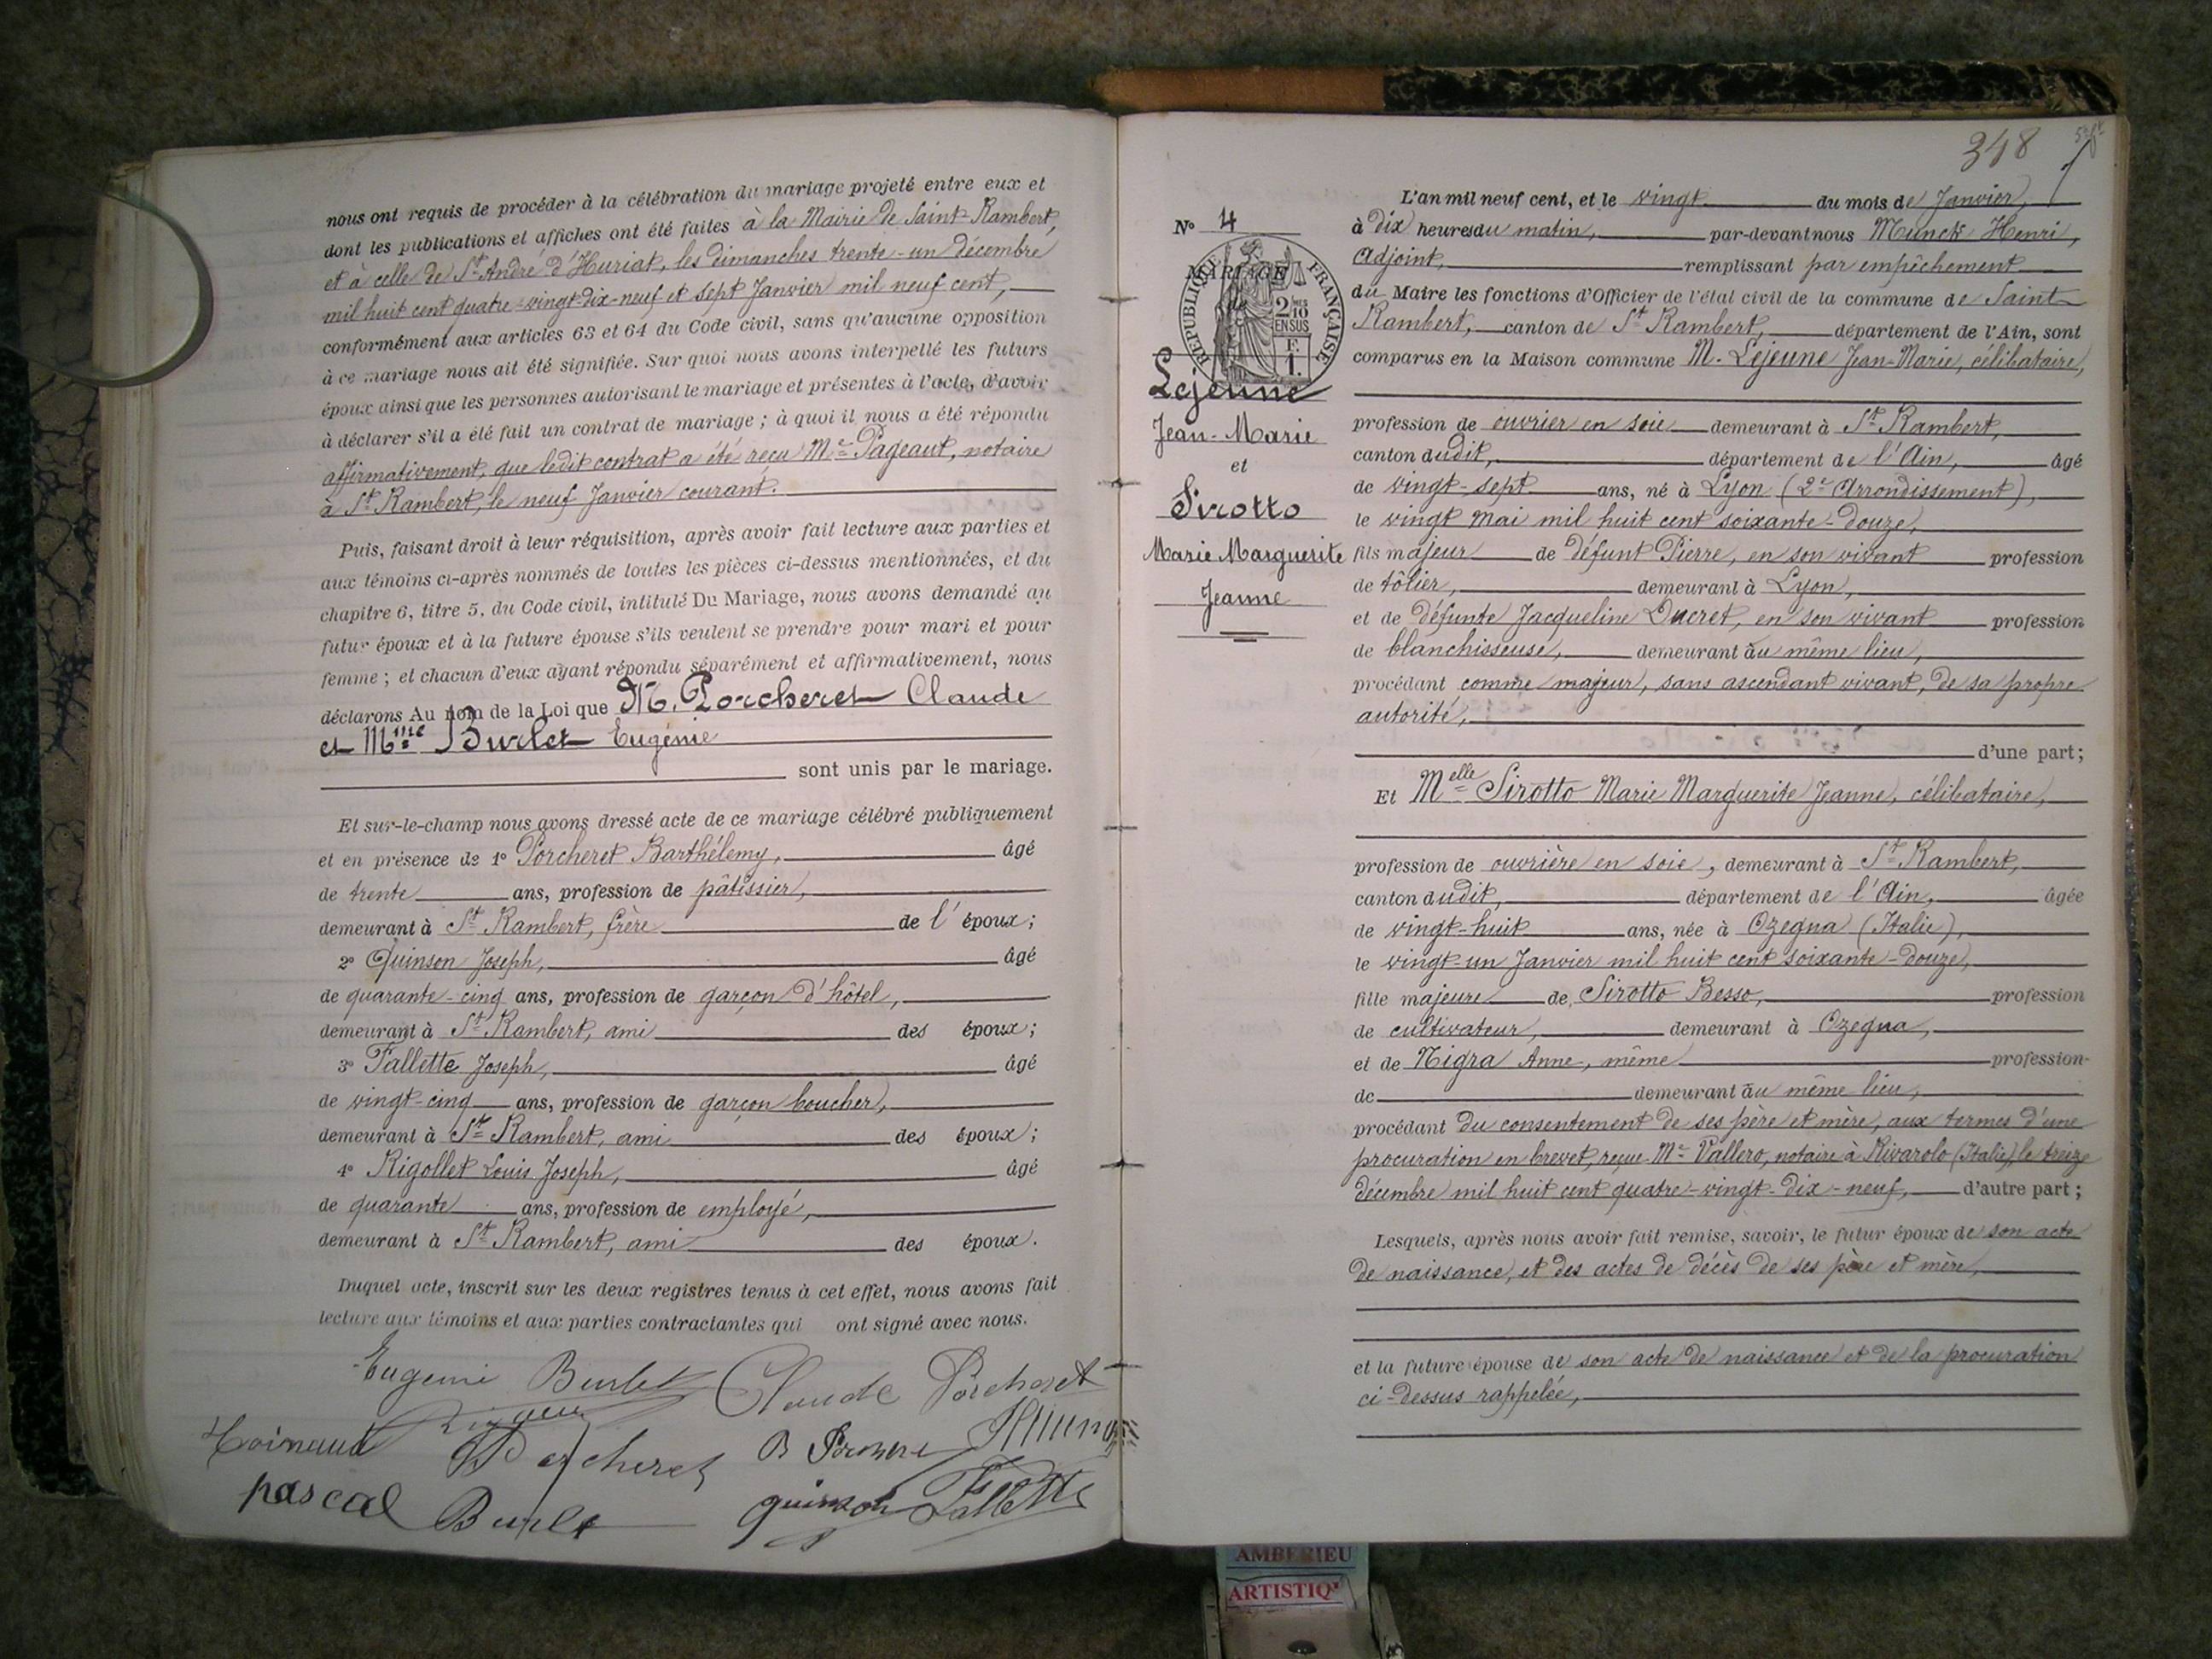 nous ont requis de procéder à la célébration du mariage projeté entre eux et
dont les publications et affiches ont été faites à la Mairie de Saint-Rambert,
et à celle de St André d'Huriat, les dimanches trente-un décembre
mil huit cent quatre-vingt-dix-neuf et sept Janvier mil neuf cent,
conformément aux articles 63 et 64 du Code civil, sans qu'aucune opposition
à ce mariage nous ait été signifiée. Sur quoi nous avons interpellé les futurs
époux ainsi que les personnes autorisant le mariage et présentes à l'acte, d'avoir
à déclarer s'il a été fait un contrat de mariage ; à quoi il nous a été répondu
affirmativement, que ledit contrat a été reçu Me Pageaut, notaire
à St Rambert, le neuf Janvier courant.
Puis, faisant droit à leur réquisition, après avoir fait lecture aux parties et
aux témoins ci-après nommés de toutes les pièces ci-dessus mentionnées, et du
chapitre 6, titre 5, du Code civil, intitulé Du Mariage, nous avons demandé au
futur époux et à la future épouse s'ils veulent se prendre pour mari et pour
femme ; et chacun d'eux ayant répondu séparément et affirmativement, nous
déclarons Au nom de la Loi que M. Porcheret Claude
et Mme Burlet Eugénie
sont unis par le mariage.
Et sur-le-champ nous avons dressé acte de ce mariage célébré publiquement
et en présence de 1° Porcheret Barthélemy, âgé
de trente ans, profession de pâtissier,
demeurant à St Rambert, frère de l' époux ;
2° Quinson Joseph, âgé
de quarante-cinq ans, profession de garçon d'hôtel,
demeurant à St Rambert, ami des époux ;
3° Fallette Joseph, âgé
de vingt-cinq ans, profession de garçon boucher,
demeurant à St Rambert, ami des époux ;
4° Rigollet Louis Joseph, âgé
de quarante ans, profession de employé,
demeurant à St Rambert, ami des époux.
Duquel acte, inscrit sur les deux registres tenus à cet effet, nous avons fait
lecture aux témoins et aux parties contractantes qui ont signé avec nous.
Eugenie Burlet Claude Porcheret
Porcheret
pascal Burlet quinson Fallette
348
N° 4
MARIAGE
de
RÉPUBLIQUE FRANÇAISE
2 MES
10
EN SUS
F.
1.
Lejeune
Jean-Marie
et
Sirotto
Marie Marguerite
Jeanne
L'an mil neuf cent, et le vingt du mois de Janvier,
à dix heures du matin, par-devant nous Munck Henri,
Adjoint, remplissant par empêchement
du Maire les fonctions d'Officier de l'état civil de la commune de Saint
Rambert, canton de St Rambert, département de l'Ain, sont
comparus en la Maison commune M. Lejeune Jean-Marie, célibataire,
profession de ouvrier en soie demeurant à St Rambert,
canton dudit, département de l'Ain, âgé
de vingt-sept ans, né à Lyon (2e Arrondissement),
le vingt Mai mil huit cent soixante-douze,
fils majeur de défunt Pierre, en son vivant profession
de tôlier, demeurant à Lyon,
et de défunte Jacqueline Ducret, en son vivant profession
de blanchisseuse, demeurant au même lieu,
procédant comme majeur, sans ascendant vivant, de sa propre
autorité,
d'une part ;
Et Melle Sirotto Marie Marguerite Jeanne, célibataire,
profession de ouvrière en soie, demeurant à St Rambert,
canton dudit, département de l'Ain, âgée
de vingt-huit ans, née à Ozegna (Italie),
le vingt-un Janvier mil huit cent soixante-douze,
fille majeure de Sirotto Besso, profession
de cultivateur, demeurant à Ozegna,
et de Nigra Anne, même profession
de demeurant au même lieu,
procédant du consentement de ses père et mère, aux termes d'une
procuration en brevet, reçue Me Vallero, notaire à Rivarolo (Italie), le treize
décembre mil huit cent quatre-vingt-dix-neuf, d'autre part ;
Lesquels, après nous avoir fait remise, savoir, le futur époux de son acte
de naissance, et des actes de décès de ses père et mère,
et la future épouse de son acte de naissance et de la procuration
ci-dessus rappelée,
AMBERIEU
ARTISTIQ